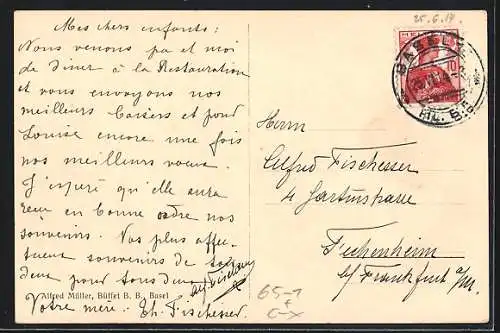 25.6.14.
Mes chers enfants:
Nous venons pa et moi
de diner à la Restauration
et vous envoyons nos
meilleurs baisers et pour
Louise encore une fois
nos meilleurs voeux.
J'espère qu'elle aura
reçu en bonne ordre nos
souvenirs. Vos plus affec-
tueux souvenirs de
deux pour tous deux
Alfred Müller, Büffet B. B., Basel
Votre mère. Eh. Fischesser
HELVETIA
10
BASEL
Herrn
Alfred Fischesser
4 Gartenstrasse
Fechenheim
b/ Frankfurt a/M.
65-1
+
C-X